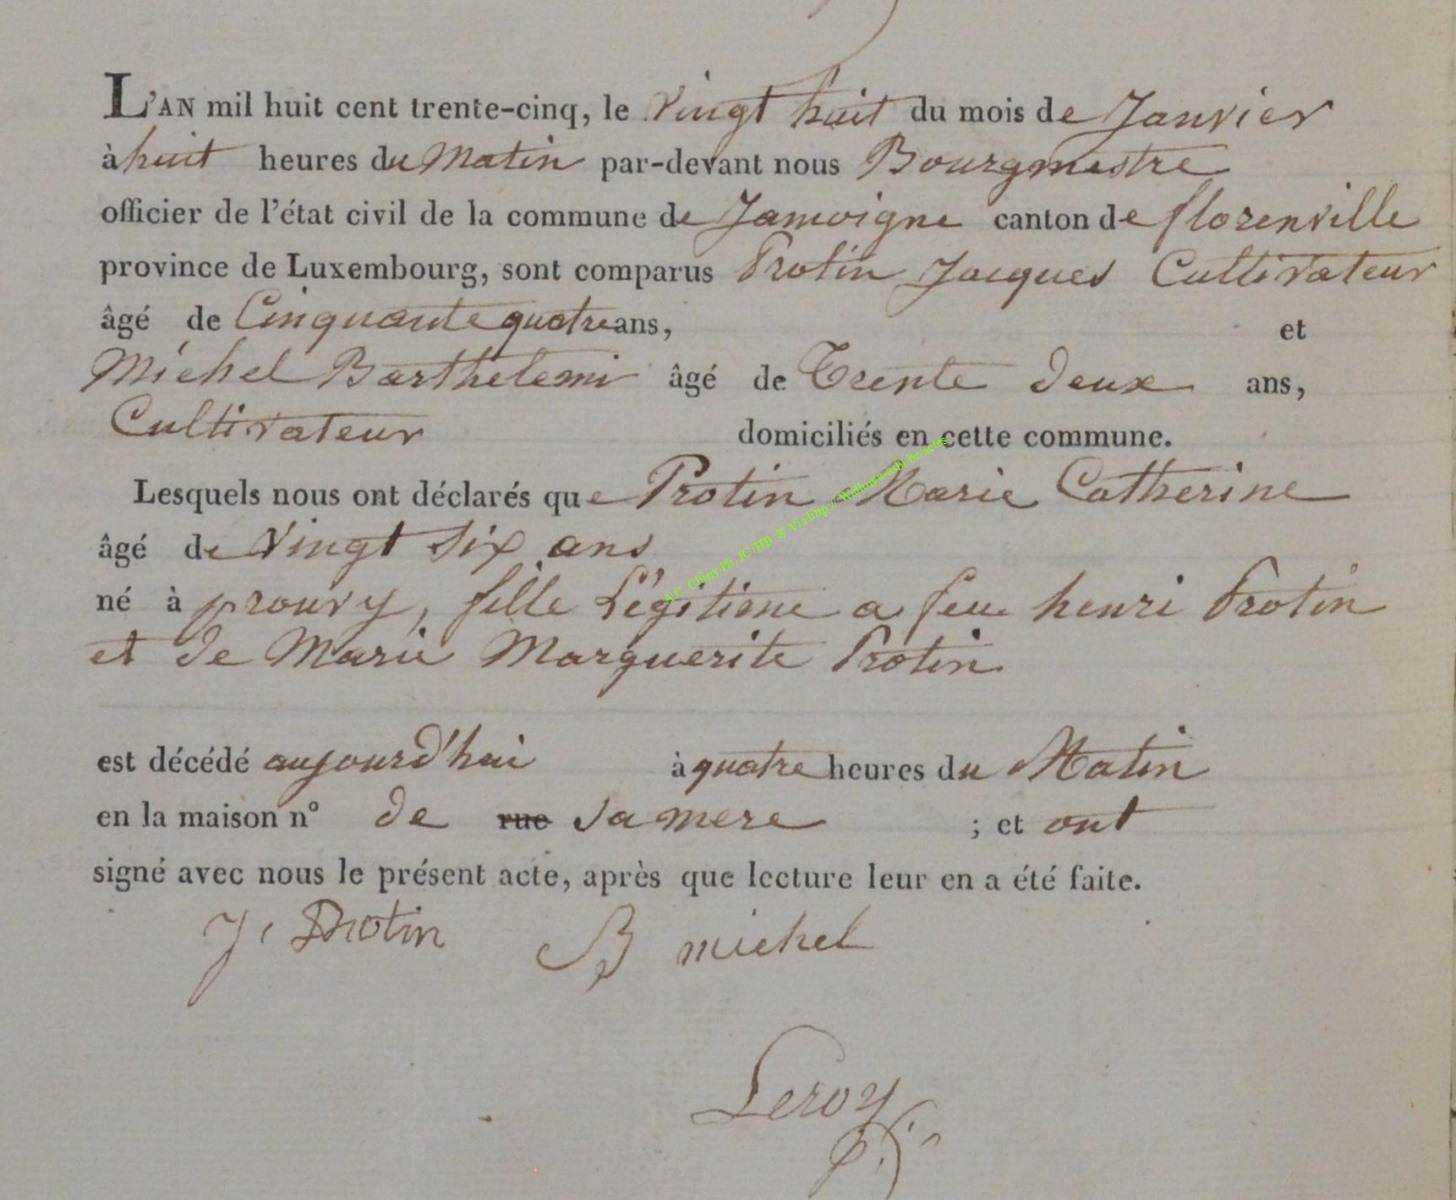 L'AN mil huit cent trente-cinq, le vingt huit du mois de Janvier
à huit heures du Matin par-devant nous Bourgmestre
officier de l'état civil de la commune de Jamoigne canton de florenville
province de Luxembourg, sont comparus Protin Jacques Cultivateur
âgé de Cinquante quatre ans, et
Michel Barthelemi âgé de Trente deux ans,
Cultivateur domiciliés en cette commune.
Lesquels nous ont déclarés que Protin Marie Catherine
âgé de vingt six ans
né à prouvy, fille Légitime a feu henri Protin
et de Marie Marguerite Protin
est décédé aujourd'hui à quatre heures du Matin
en la maison n° de rue sa mere ; et ont
signé avec nous le présent acte, après que lecture leur en a été faite.
J. Protin B michel
Leroy